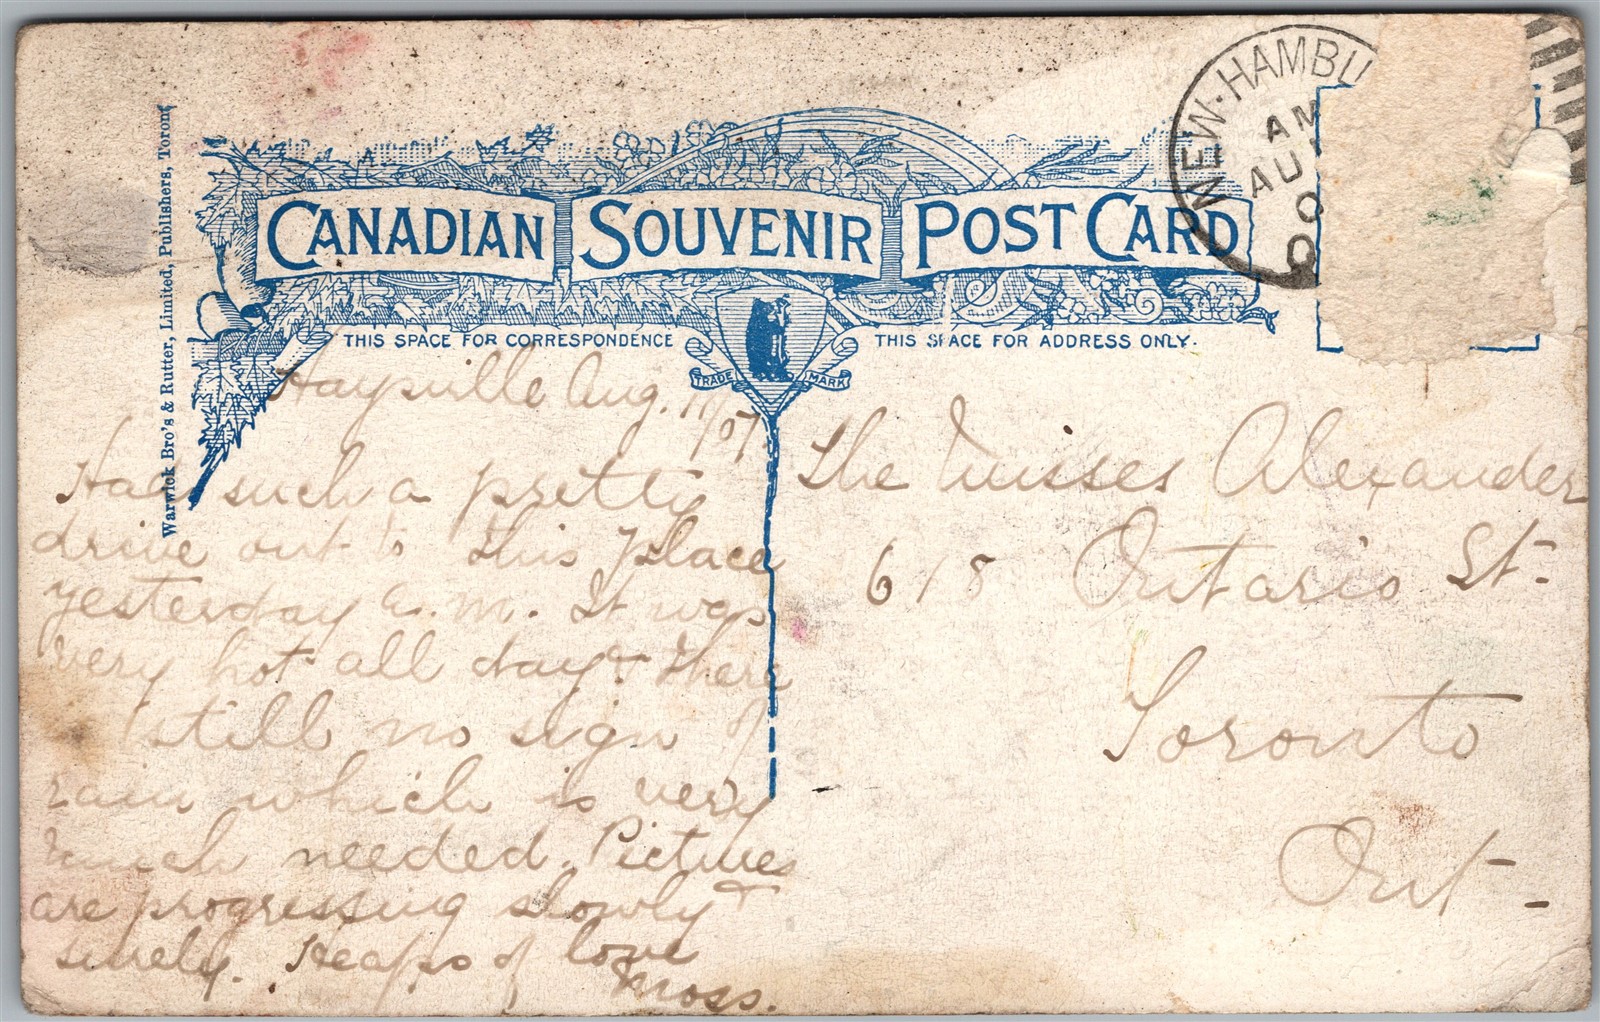 Warwick Bro's & Rutter, Limited, Publishers, Toront
CANADIAN SOUVENIR POST CARD
THIS SPACE FOR CORRESPONDENCE
THIS SPACE FOR ADDRESS ONLY.
TRADE MARK
NEW-HAMBU
AM
AU
0
Haysville Aug. 11/07.
Had such a pretty
drive out to this place
yesterday a.m. It was
very hot all day & there
still no sign of
rain which is very
much needed. Pictures
are progressing slowly &
surely. Heaps of love
Moss.
The Misses Alexander
618 Ontario St-
Toronto
Ont-